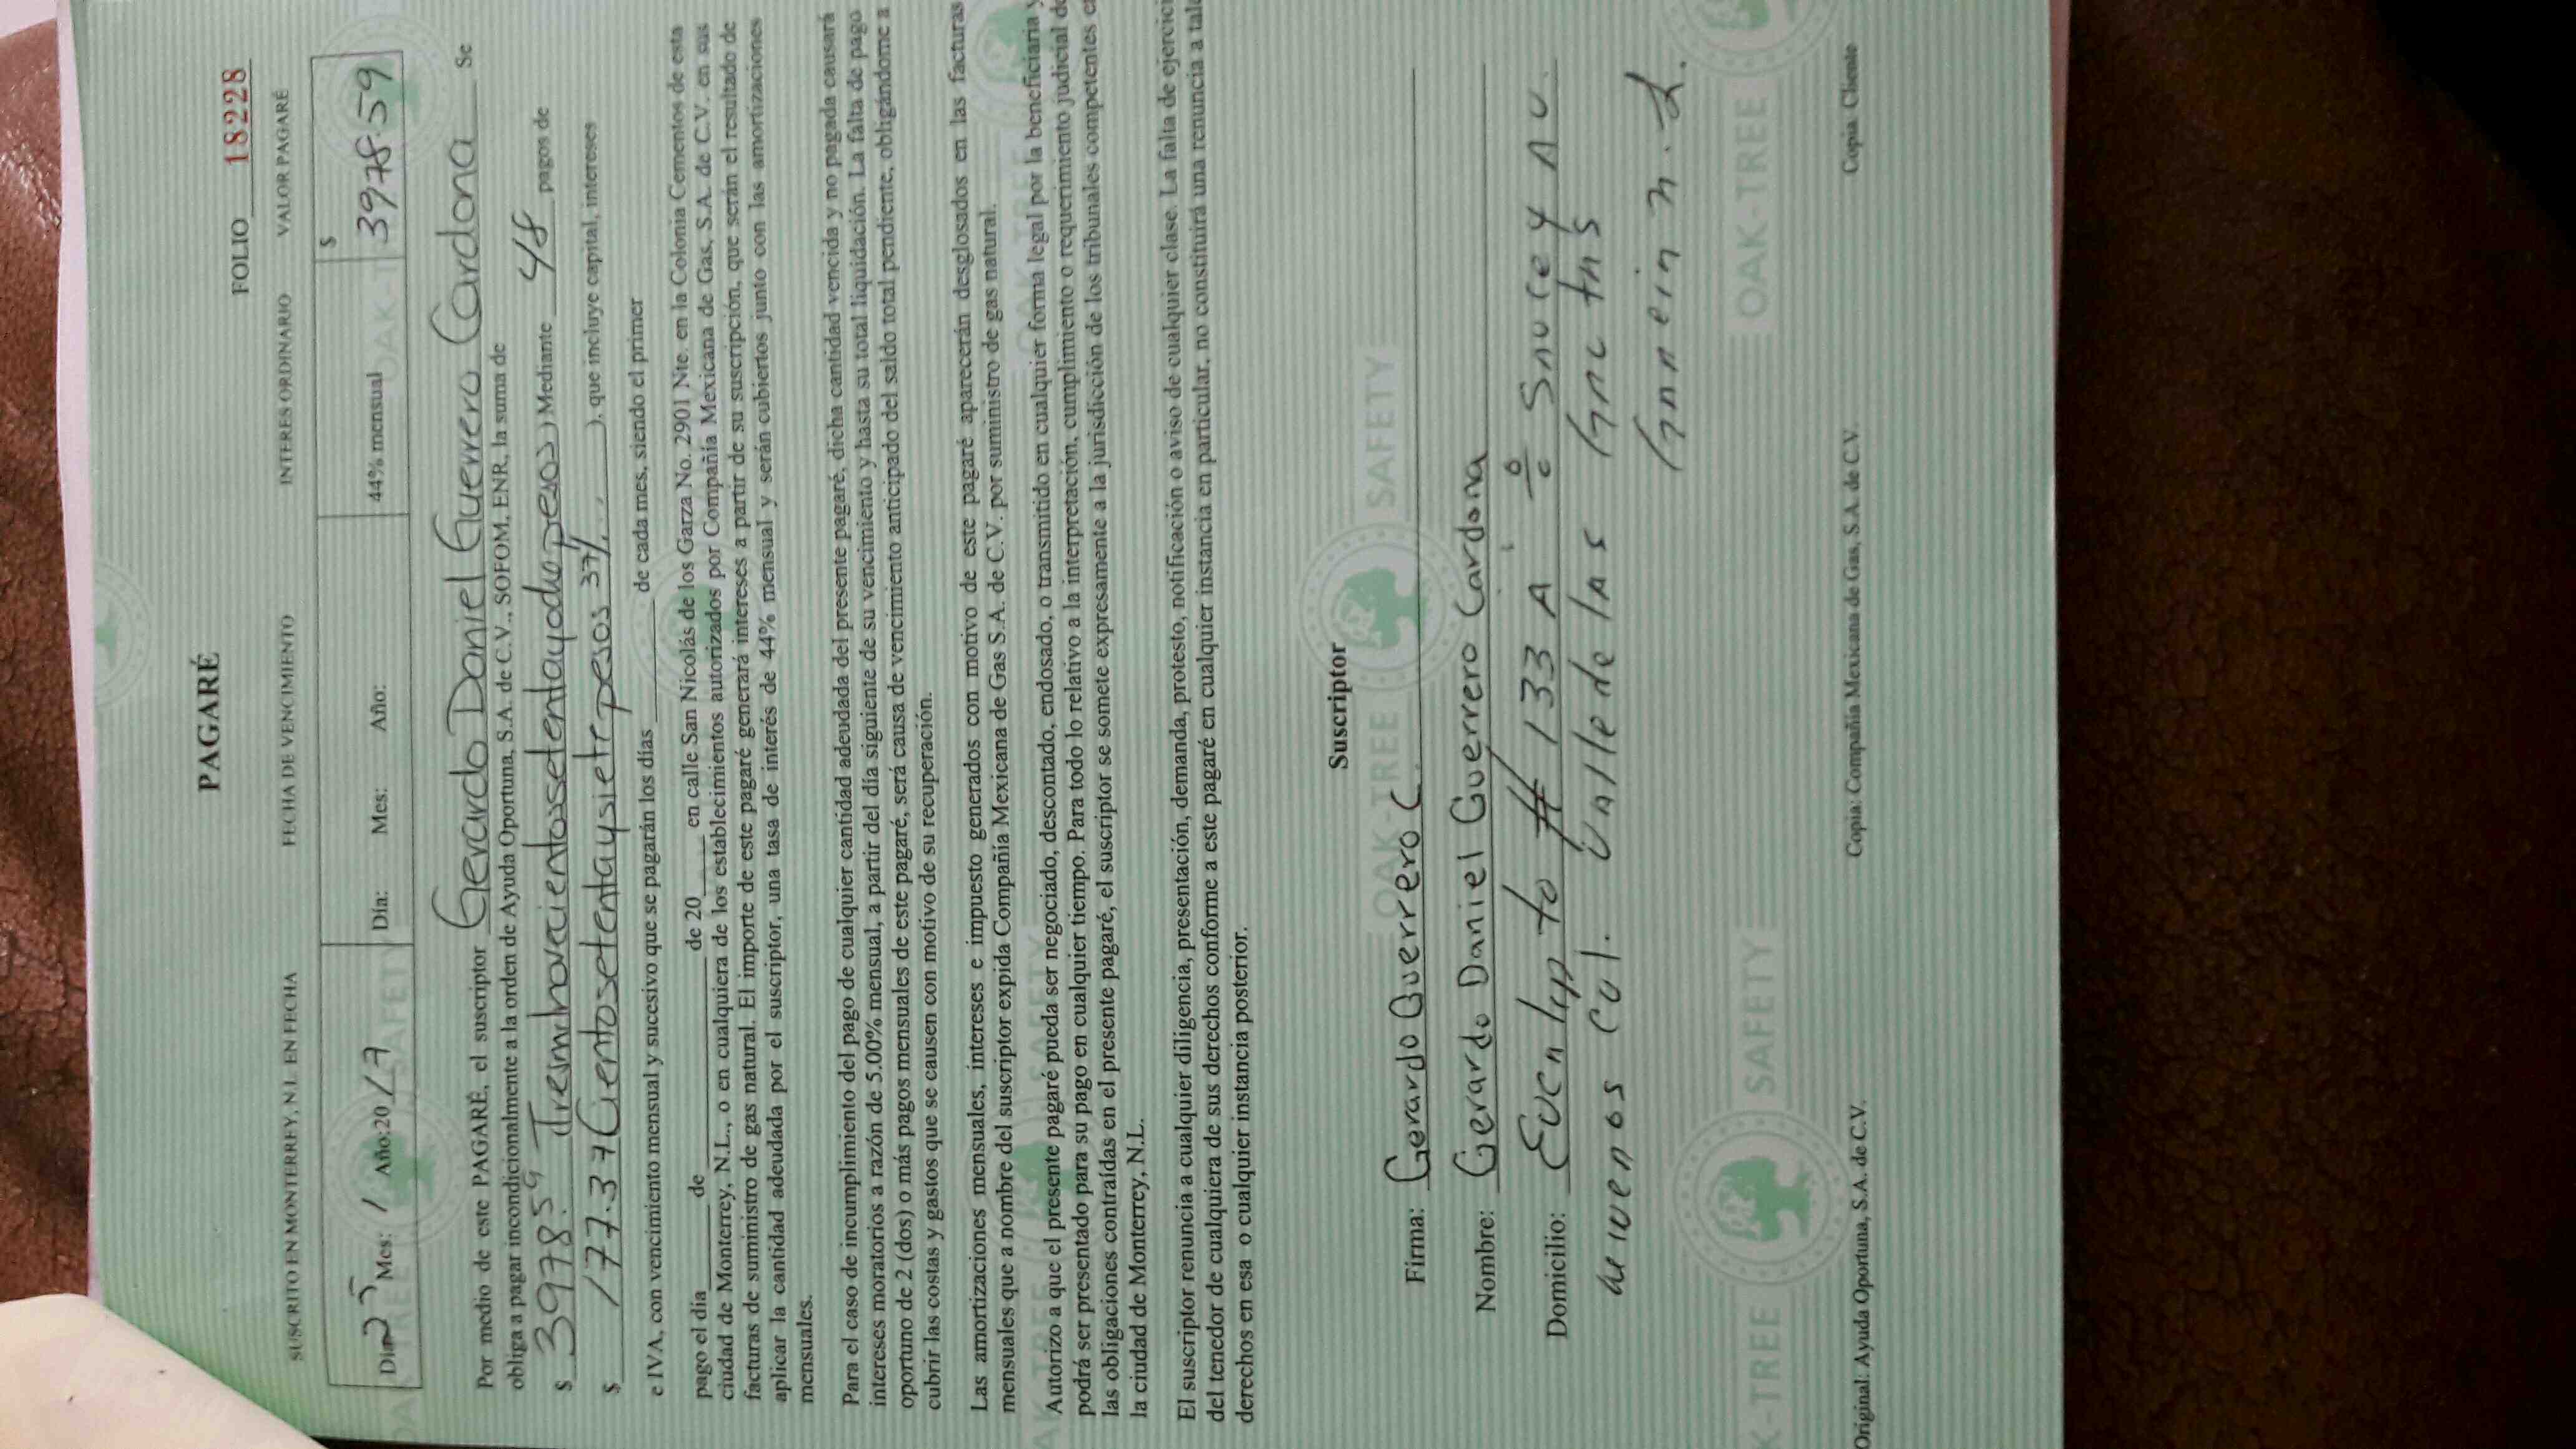 PAGARÉ
FOLIO 18228
SUSCRITO EN MONTERREY, N.L. EN FECHA FECHA DE VENCIMIENTO INTERES ORDINARIO VALOR PAGARÉ
Día: 25 Mes: 1 Año:2017 Día: Mes: Año: 44% mensual $ 3978.59
Por medio de este PAGARÉ, el suscriptor Gerardo Daniel Guerrero Cardona Se
obliga a pagar incondicionalmente a la orden de Ayuda Oportuna, S.A. de C.V., SOFOM, ENR, la suma de
$ 3978.59 Tresmilnovecientosetentayochopesos) Mediante 48 pagos de
$ 177.37 Cientosetentaysiete pesos 37/. ), que incluye capital, intereses
e IVA, con vencimiento mensual y sucesivo que se pagarán los días de cada mes, siendo el primer
pago el día de de 20 en calle San Nicolás de los Garza No. 2901 Nte. en la Colonia Cementos de esta
ciudad de Monterrey, N.L., o en cualquiera de los establecimientos autorizados por Compañía Mexicana de Gas, S.A. de C.V. en sus
facturas de suministro de gas natural. El importe de este pagaré generará intereses a partir de su suscripción, que serán el resultado de
aplicar la cantidad adeudada por el suscriptor, una tasa de interés de 44% mensual y serán cubiertos junto con las amortizaciones
mensuales.
Para el caso de incumplimiento del pago de cualquier cantidad adeudada del presente pagaré, dicha cantidad vencida y no pagada causará
intereses moratorios a razón de 5.00% mensual, a partir del día siguiente de su vencimiento y hasta su total liquidación. La falta de pago
oportuno de 2 (dos) o más pagos mensuales de este pagaré, será causa de vencimiento anticipado del saldo total pendiente, obligándome a
cubrir las costas y gastos que se causen con motivo de su recuperación.
Las amortizaciones mensuales, intereses e impuesto generados con motivo de este pagaré aparecerán desglosados en las facturas
mensuales que a nombre del suscriptor expida Compañía Mexicana de Gas S.A. de C.V. por suministro de gas natural.
Autorizo a que el presente pagaré pueda ser negociado, descontado, endosado, o transmitido en cualquier forma legal por la beneficiaria y
podrá ser presentado para su pago en cualquier tiempo. Para todo lo relativo a la interpretación, cumplimiento o requerimiento judicial de
las obligaciones contraídas en el presente pagaré, el suscriptor se somete expresamente a la jurisdicción de los tribunales competentes en
la ciudad de Monterrey, N.L.
El suscriptor renuncia a cualquier diligencia, presentación, demanda, protesto, notificación o aviso de cualquier clase. La falta de ejercici
del tenedor de cualquiera de sus derechos conforme a este pagaré en cualquier instancia en particular, no constituirá una renuncia a tale
derechos en esa o cualquier instancia posterior.
Suscriptor
Firma: Gerardo Guerrero C.
Nombre: Gerardo Daniel Guerrero Cardona
Domicilio: Eucalipto # 133 A
Col. Valle de las
Original: Ayuda Oportuna, S.A. de C.V. Copia: Compañía Mexicana de Gas, S.A. de C.V. Copia: Cliente
OAK-TREE SAFETY